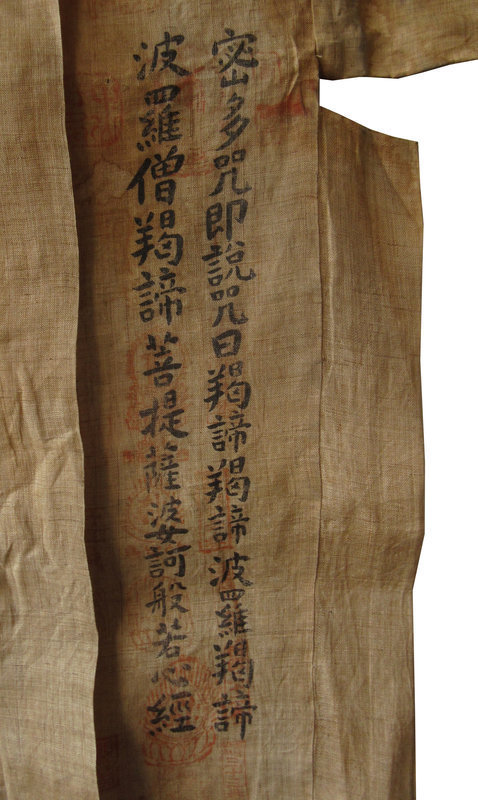 密多咒即說咒曰羯諦羯諦波羅羯諦
波羅僧羯諦菩提薩婆訶般若心經